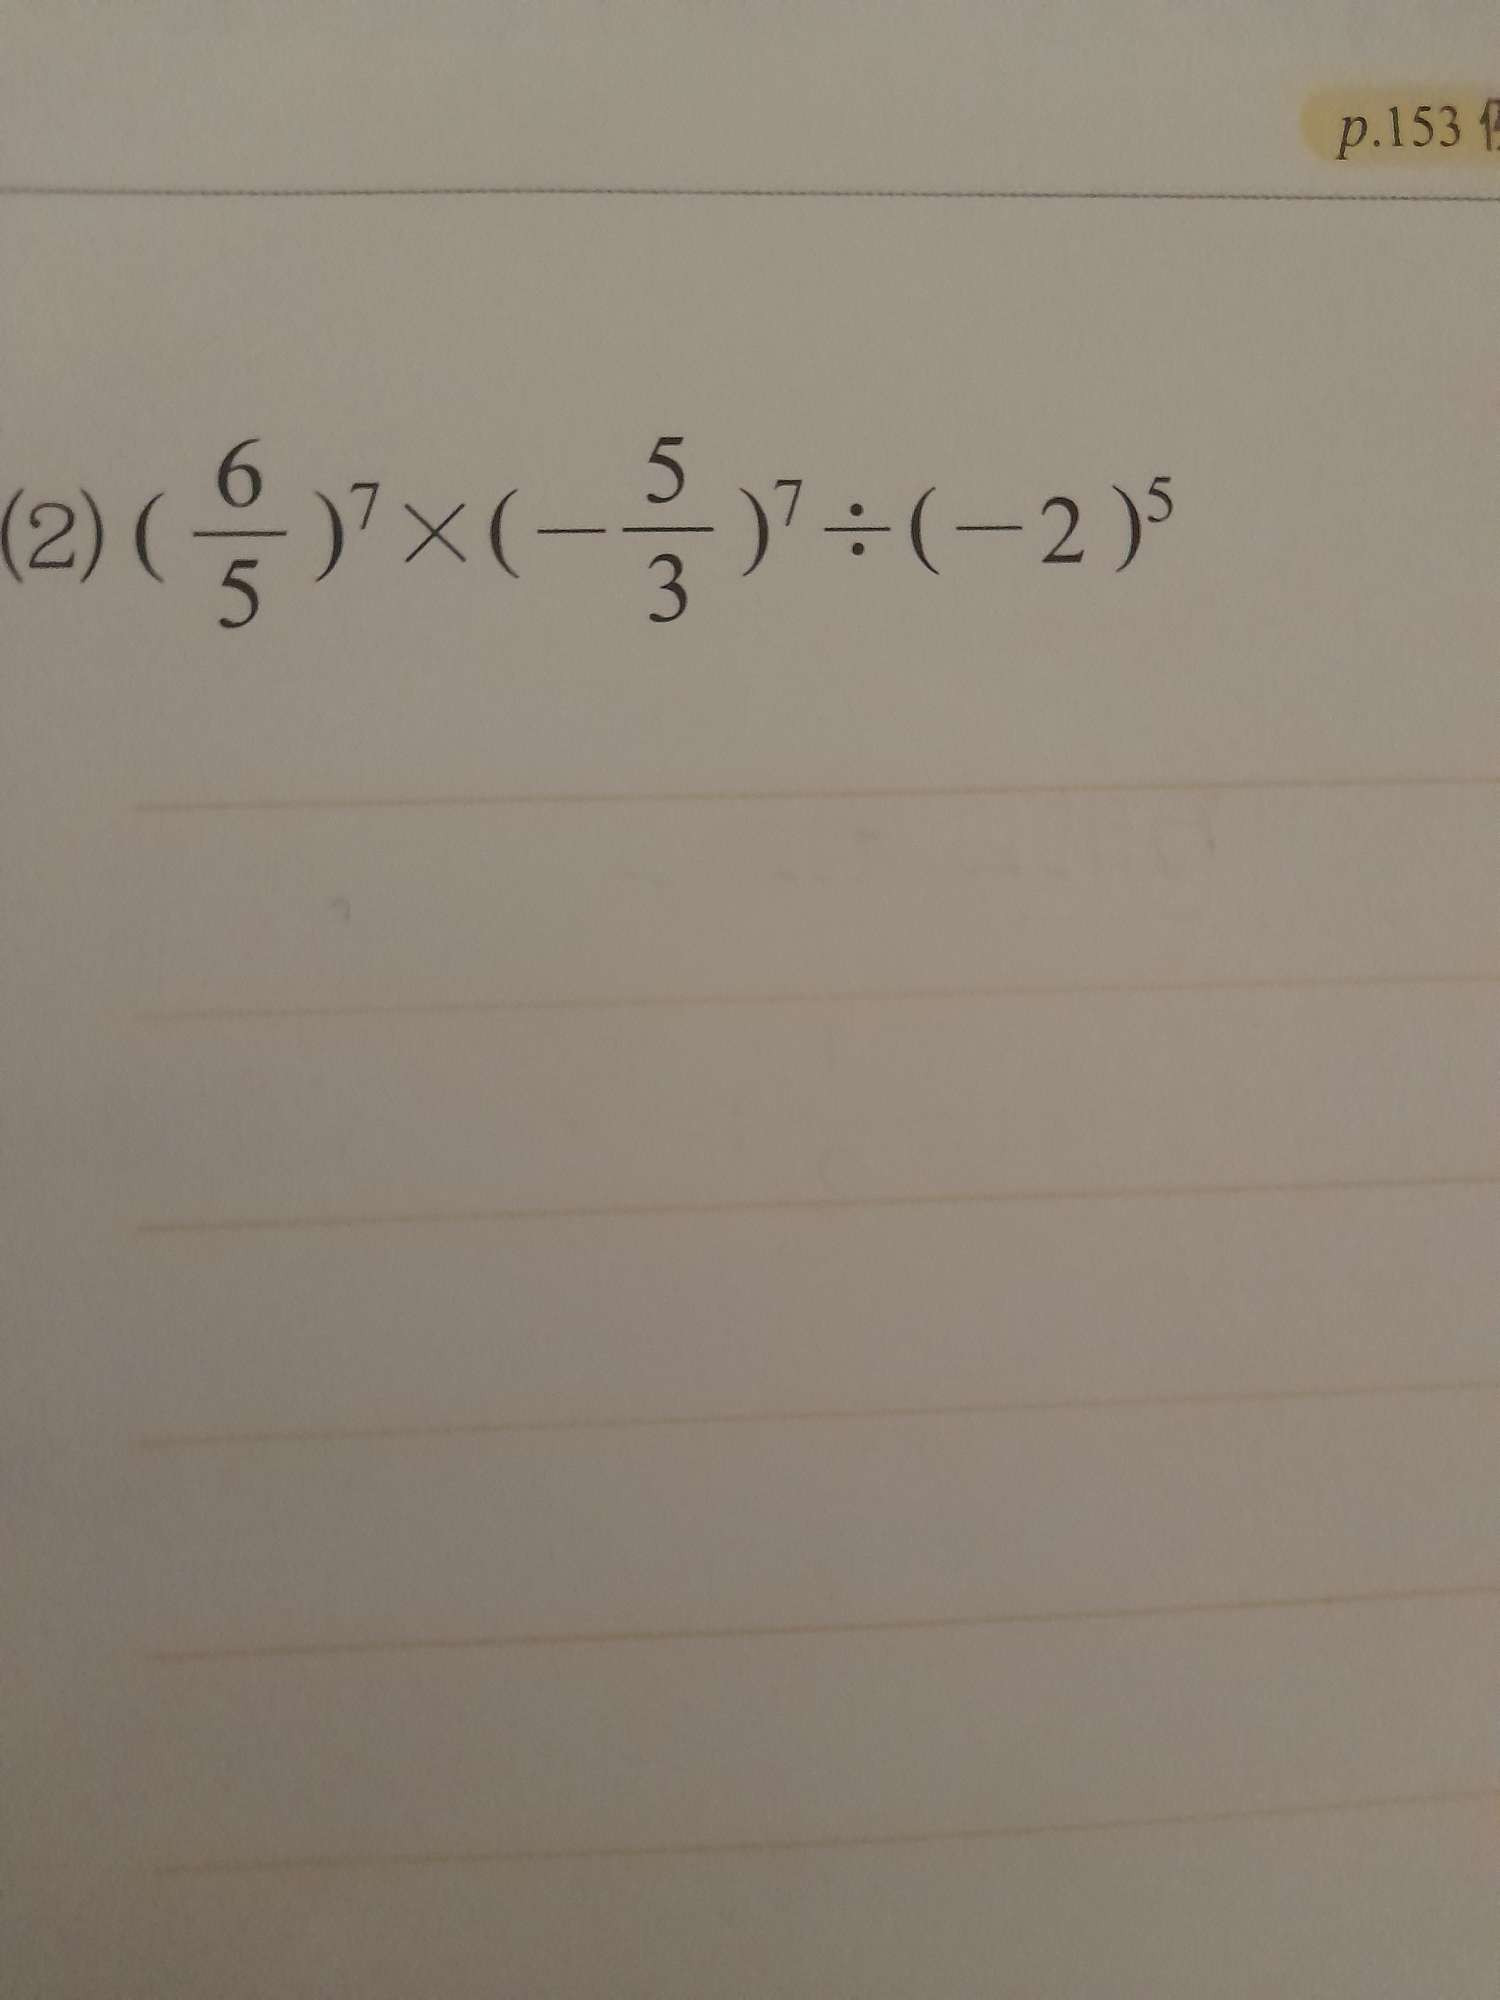 p.153
(2) ( 6/5 )⁷×(−5/3 )⁷÷(−2 )⁵